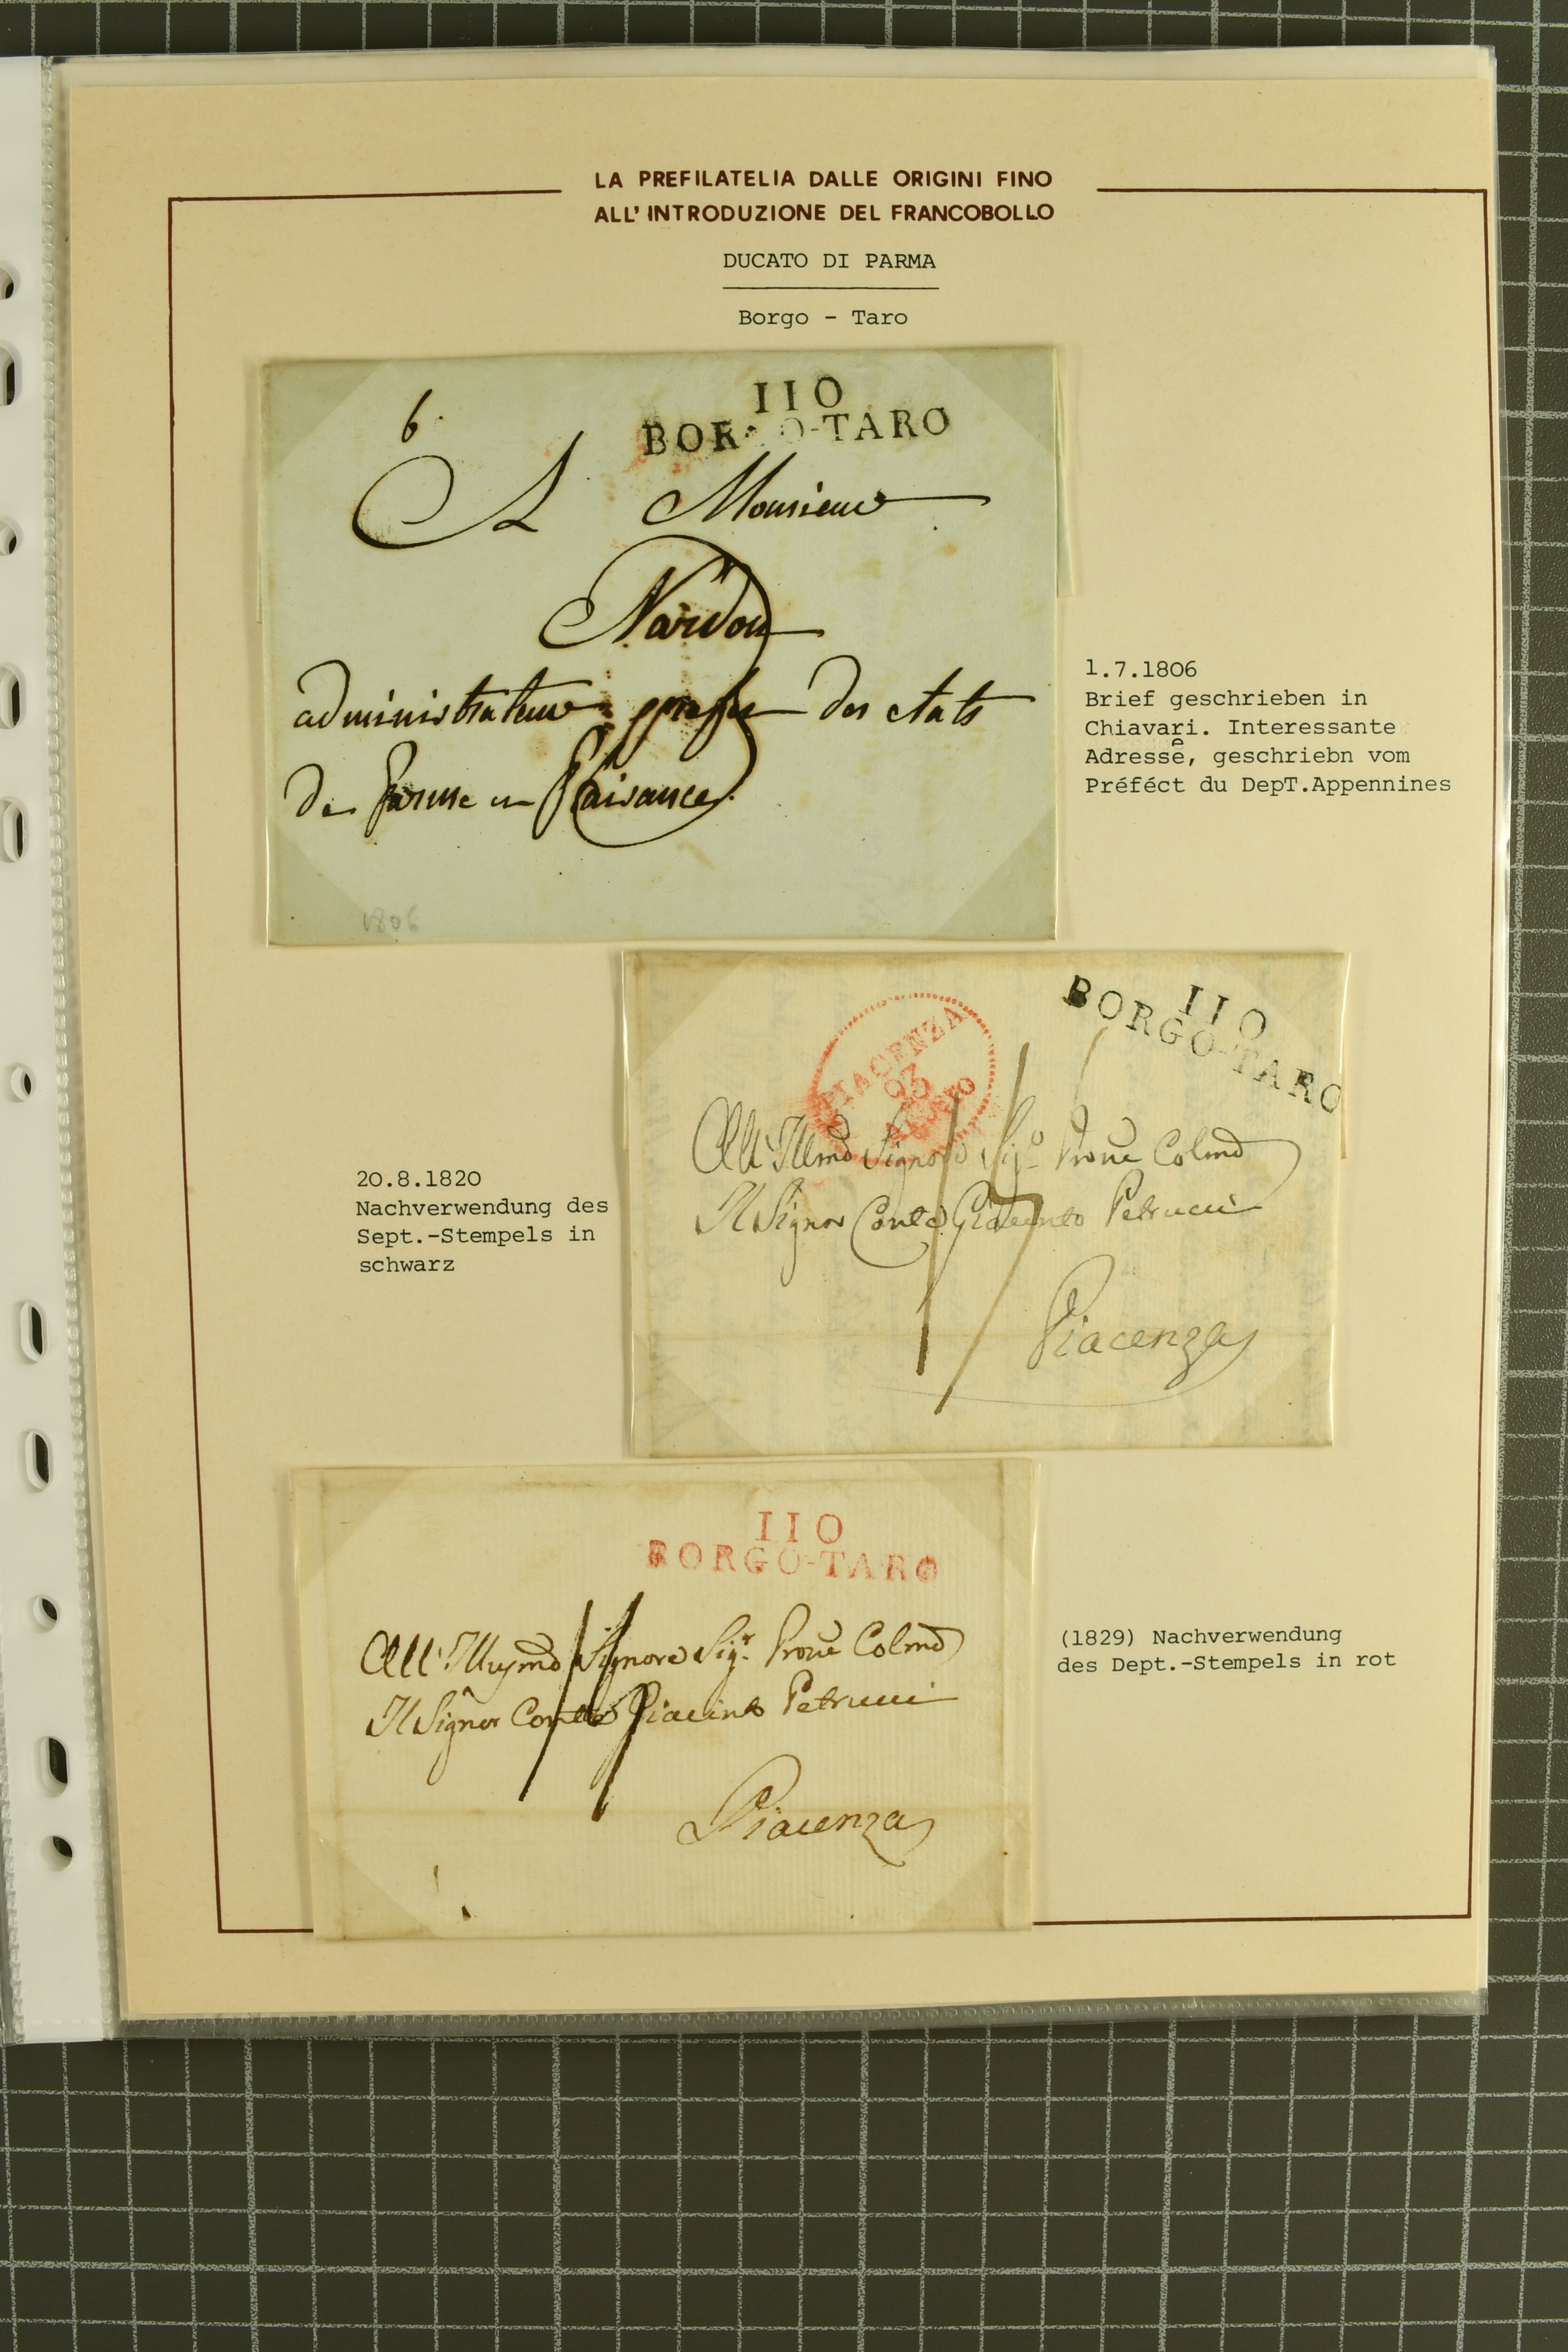 LA PREFILATELIA DALLE ORIGINI FINO
ALL' INTRODUZIONE DEL FRANCOBOLLO
DUCATO DI PARMA
Borgo - Taro
6
110
BORGO-TARO
A Monsieur
Nardon
administrateur prefet des etats
de Parme en Plaisance
1806
1.7.1806
Brief geschrieben in
Chiavari. Interessante
Adresse, geschriebn vom
e
Préféct du DepT.Appennines
110
BORGO-TARO
PIACENZA
23
AGOSTO
All' Illmo Signore Sig.o Prone Colmo
Il Signor Conte Giacinto Petrucci
Piacenza
20.8.1820
Nachverwendung des
Sept.-Stempels in
schwarz
110
BORGO-TARO
All' Signore Sig.r Prone Colmo
Il Signor Conte Giacinto Petrucci
Piacenza
(1829) Nachverwendung
des Dept.-Stempels in rot